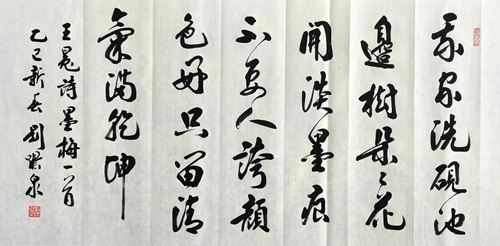 我家洗硯池
邊樹朵〻花
開淡墨痕
不要人誇顏
色好只留清
氣滿乾坤
王冕詩墨梅一首
乙巳新春劉泉